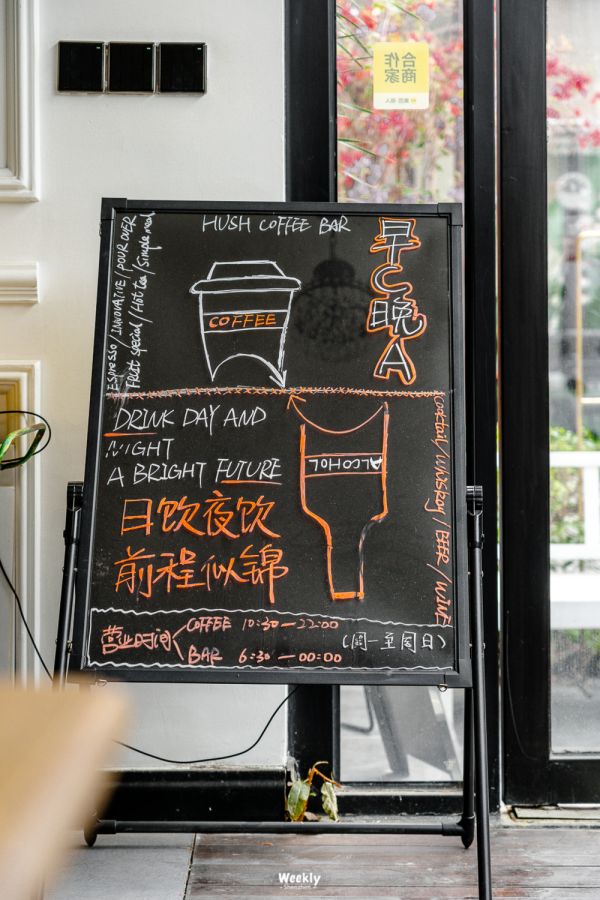 合作
商家
HUSH COFFEE BAR
早C晚A
Espresso / INNOVATIVE / POUR OVER
Fruit special / Hot tea / Simple meal
COFFEE
DRINK DAY AND
NIGHT
A BRIGHT FUTURE
日饮夜饮
前程似锦
ALCOHOL
Cocktail / Whiskey / BEER / WINE
营业时间
COFFEE 10:30—22:00
BAR 6:30—00:00
(周一至周日)
Weekly
Shenzhen